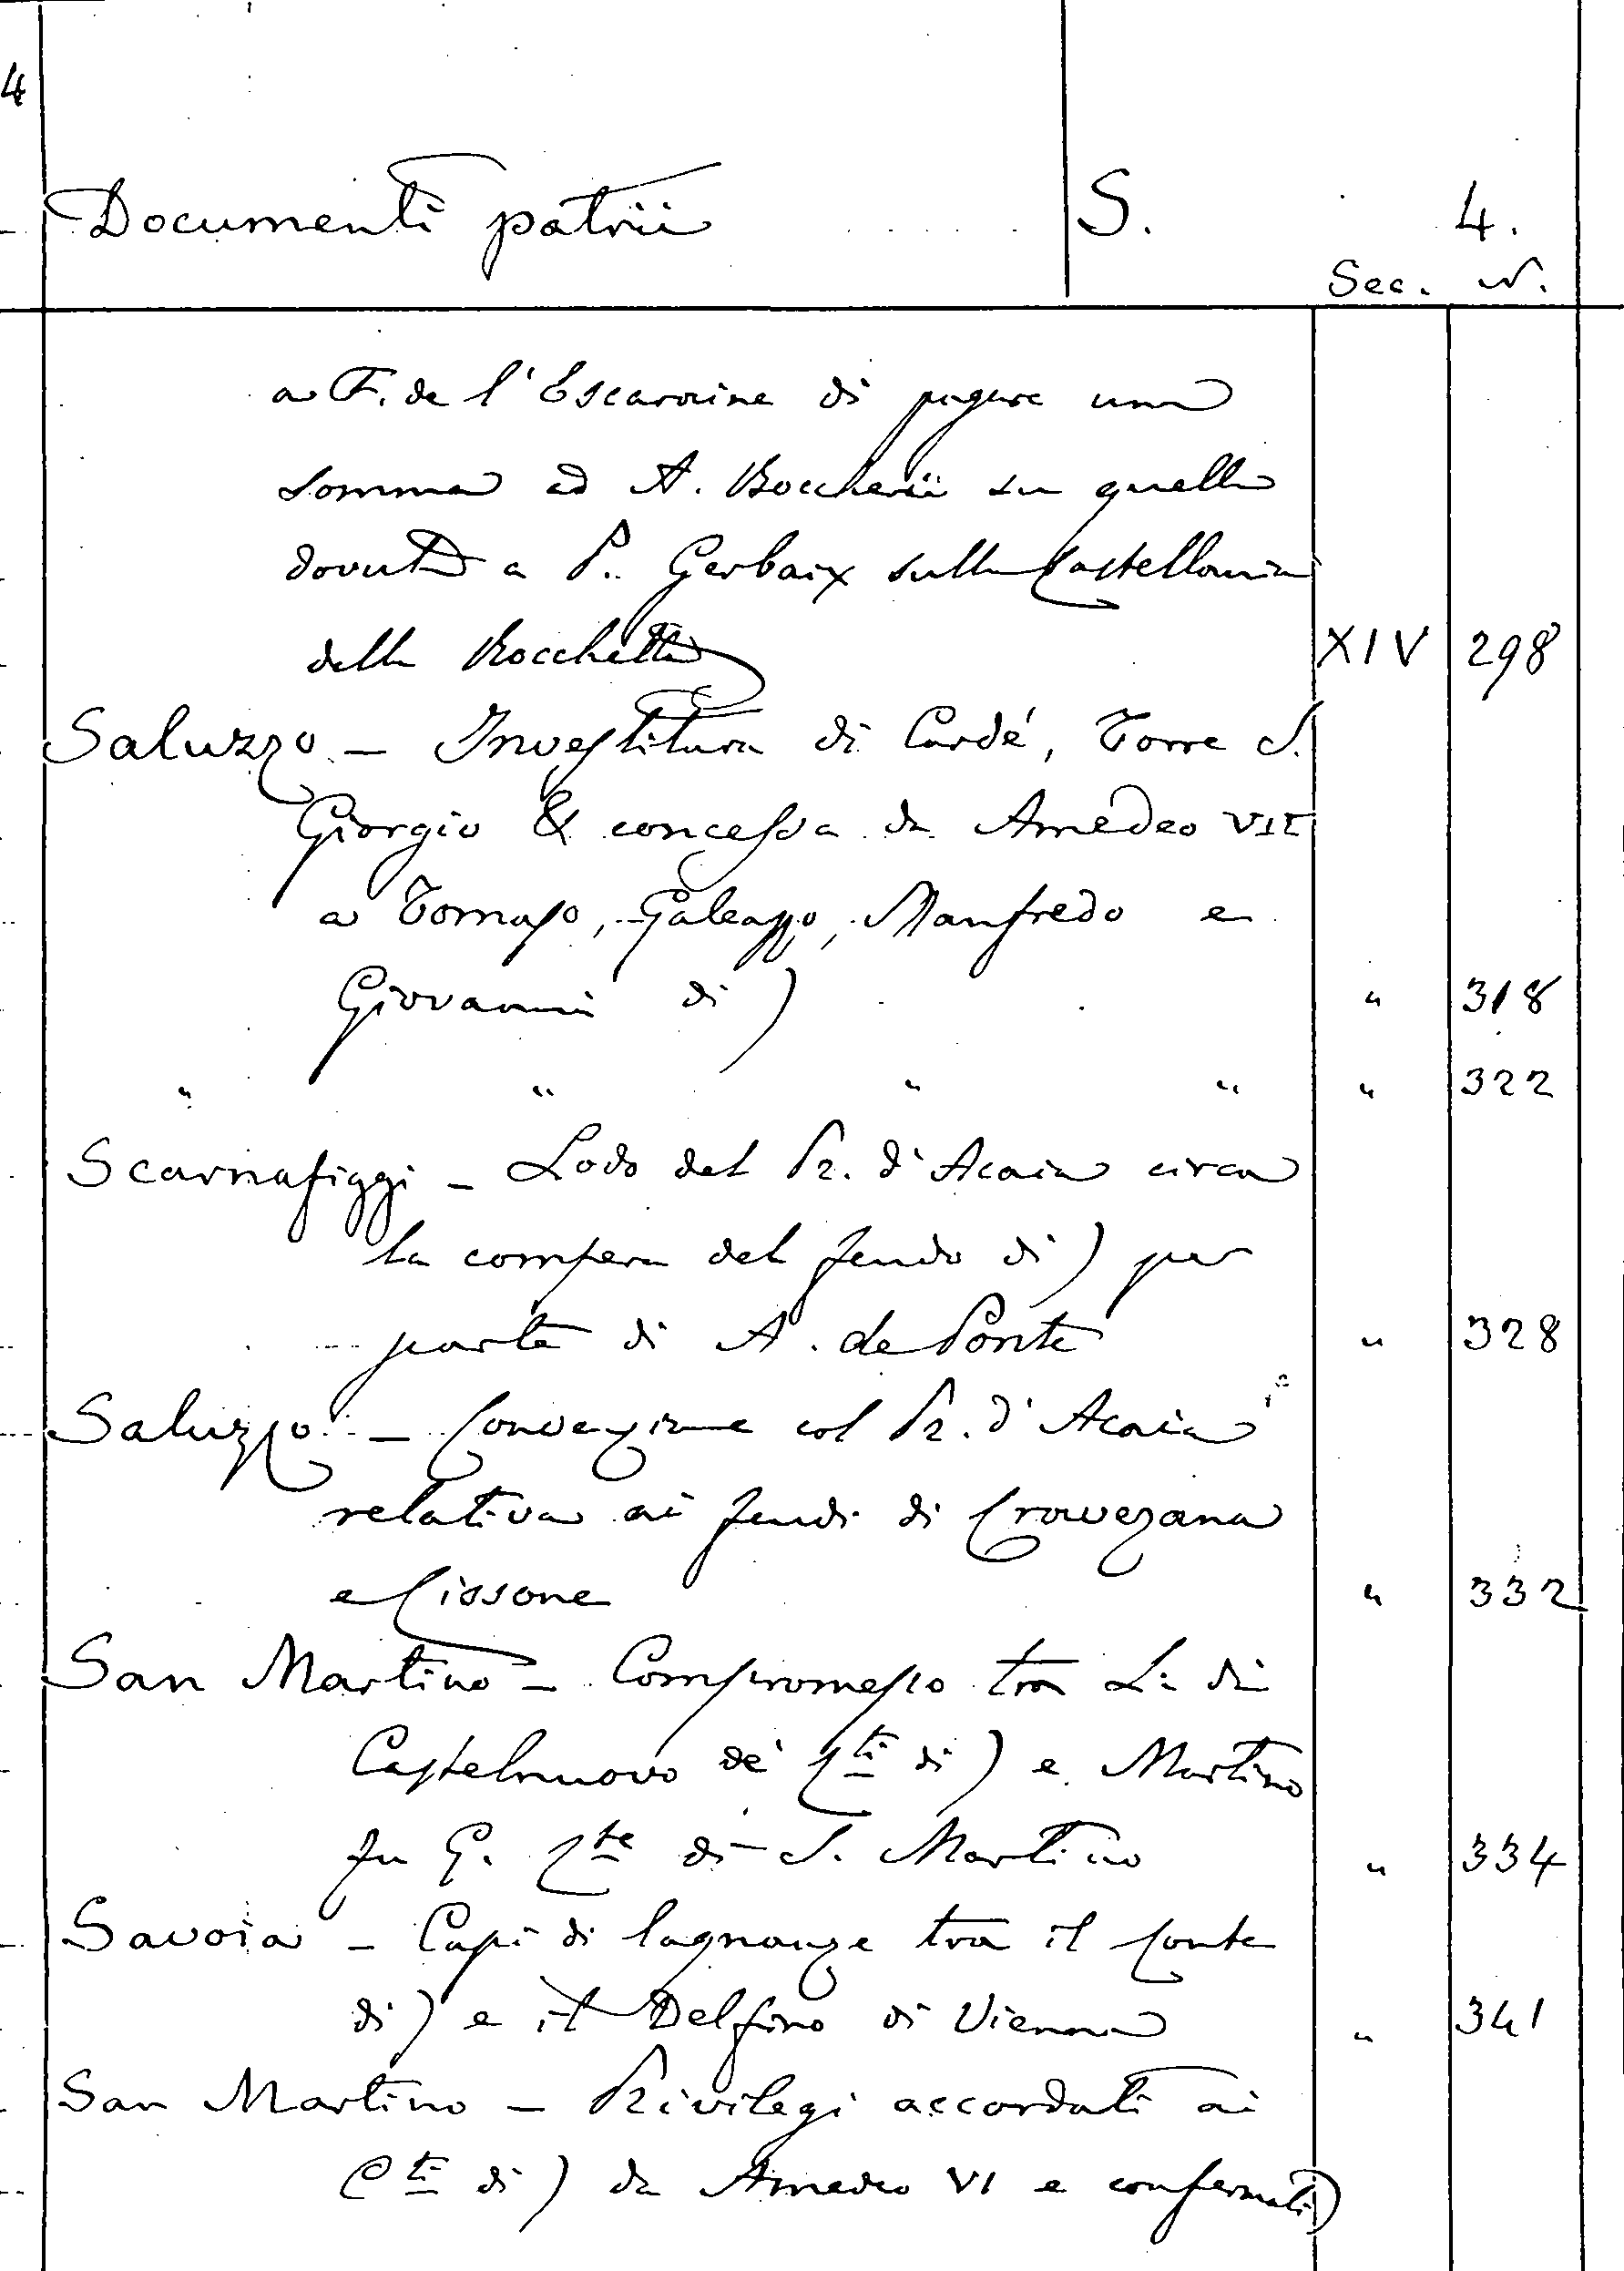 4
Documenti patrii S. 4.
Sec. N.
a F. de l'Escaraine di pagare una
somma ad A. Boccherii su quella
dovuta a P. Gerbaix sulla Castellania
della Rocchetta XIV 298
Saluzzo - Investitura di Cardé, Torre S.
Giorgio & concessa da Amedeo VII
a Tomaso, Galeazzo, Manfredo e
Giovanni di) " 318
" " " " " 322
Scarnafiggi - Lodo del Pr. d'Acaia circa
la compera del feudo di) per
parte di A. de Ponte " 328
Saluzzo - Convenzione col Pr. d'Acaia
relativa ai feudi di Cravezana
e Cissone " 332
San Martino - Compromesso tra L. di
Castelnuovo de' Cti di) e Martino
fu G. Cte di S. Martino " 334
Savoia - Capi di lagnanze tra il Conte
di) e il Delfino di Vienna " 341
San Martino - Privilegi accordati ai
Cti di) da Amedeo VI e confermati